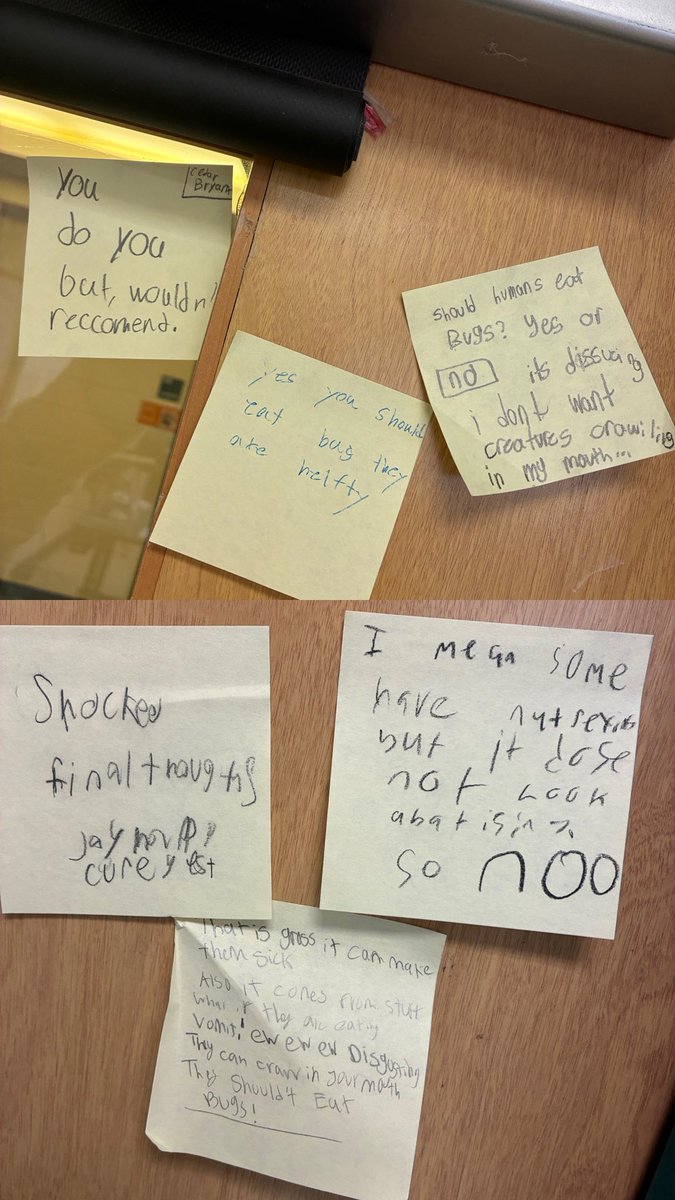 You
do you
but, wouldn'
reccomend.
Bryant
yes you should
eat bug they
are helfty
should humans eat
Bugs? Yes or
no its dissucing
i dont want
creatures crawiling
in my mouth...
Shocked
final thoughts
I mean some
have
but it dose
not Look
so nOO
That is gross it can make
them sick
Also it comes from stuff
what if they are eating
vomit! ew ew ew Disgosting
They can crawl in your mouth
They Should't Eat
Bugs!